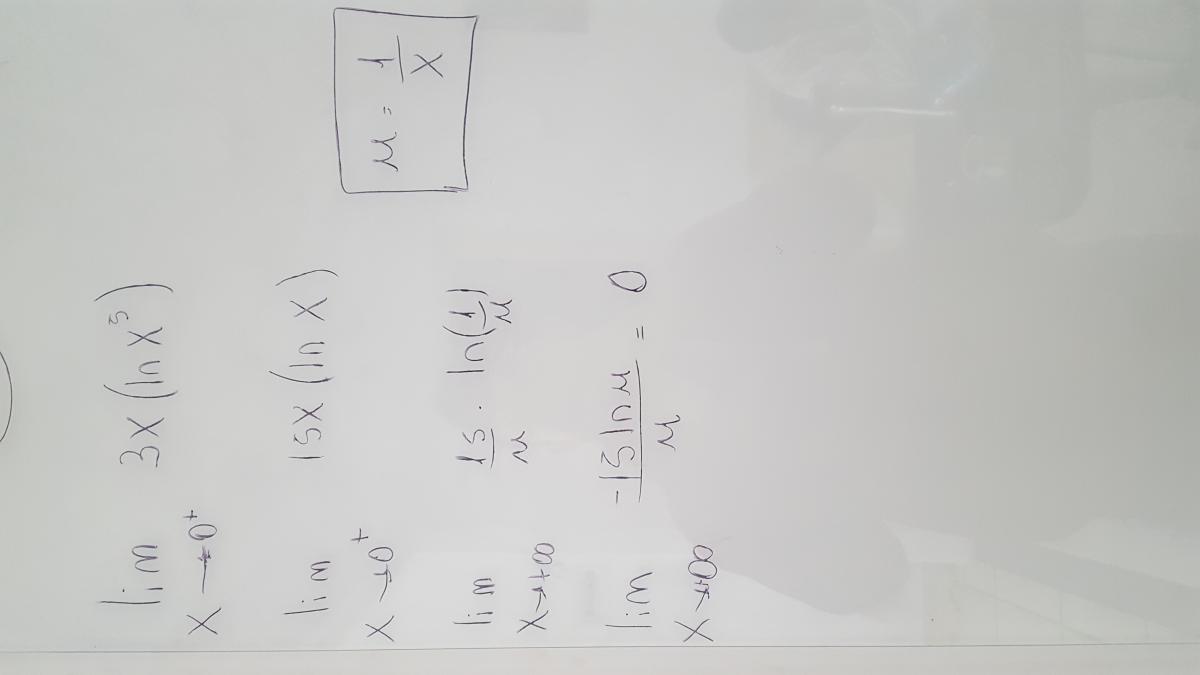 lim x→0⁺ 3x(ln x⁵)
lim x→0⁺ 15x(ln x)
u = 1/x
lim x→+∞ 15/u · ln(1/u)
lim x→+∞ -15 ln u / u = 0